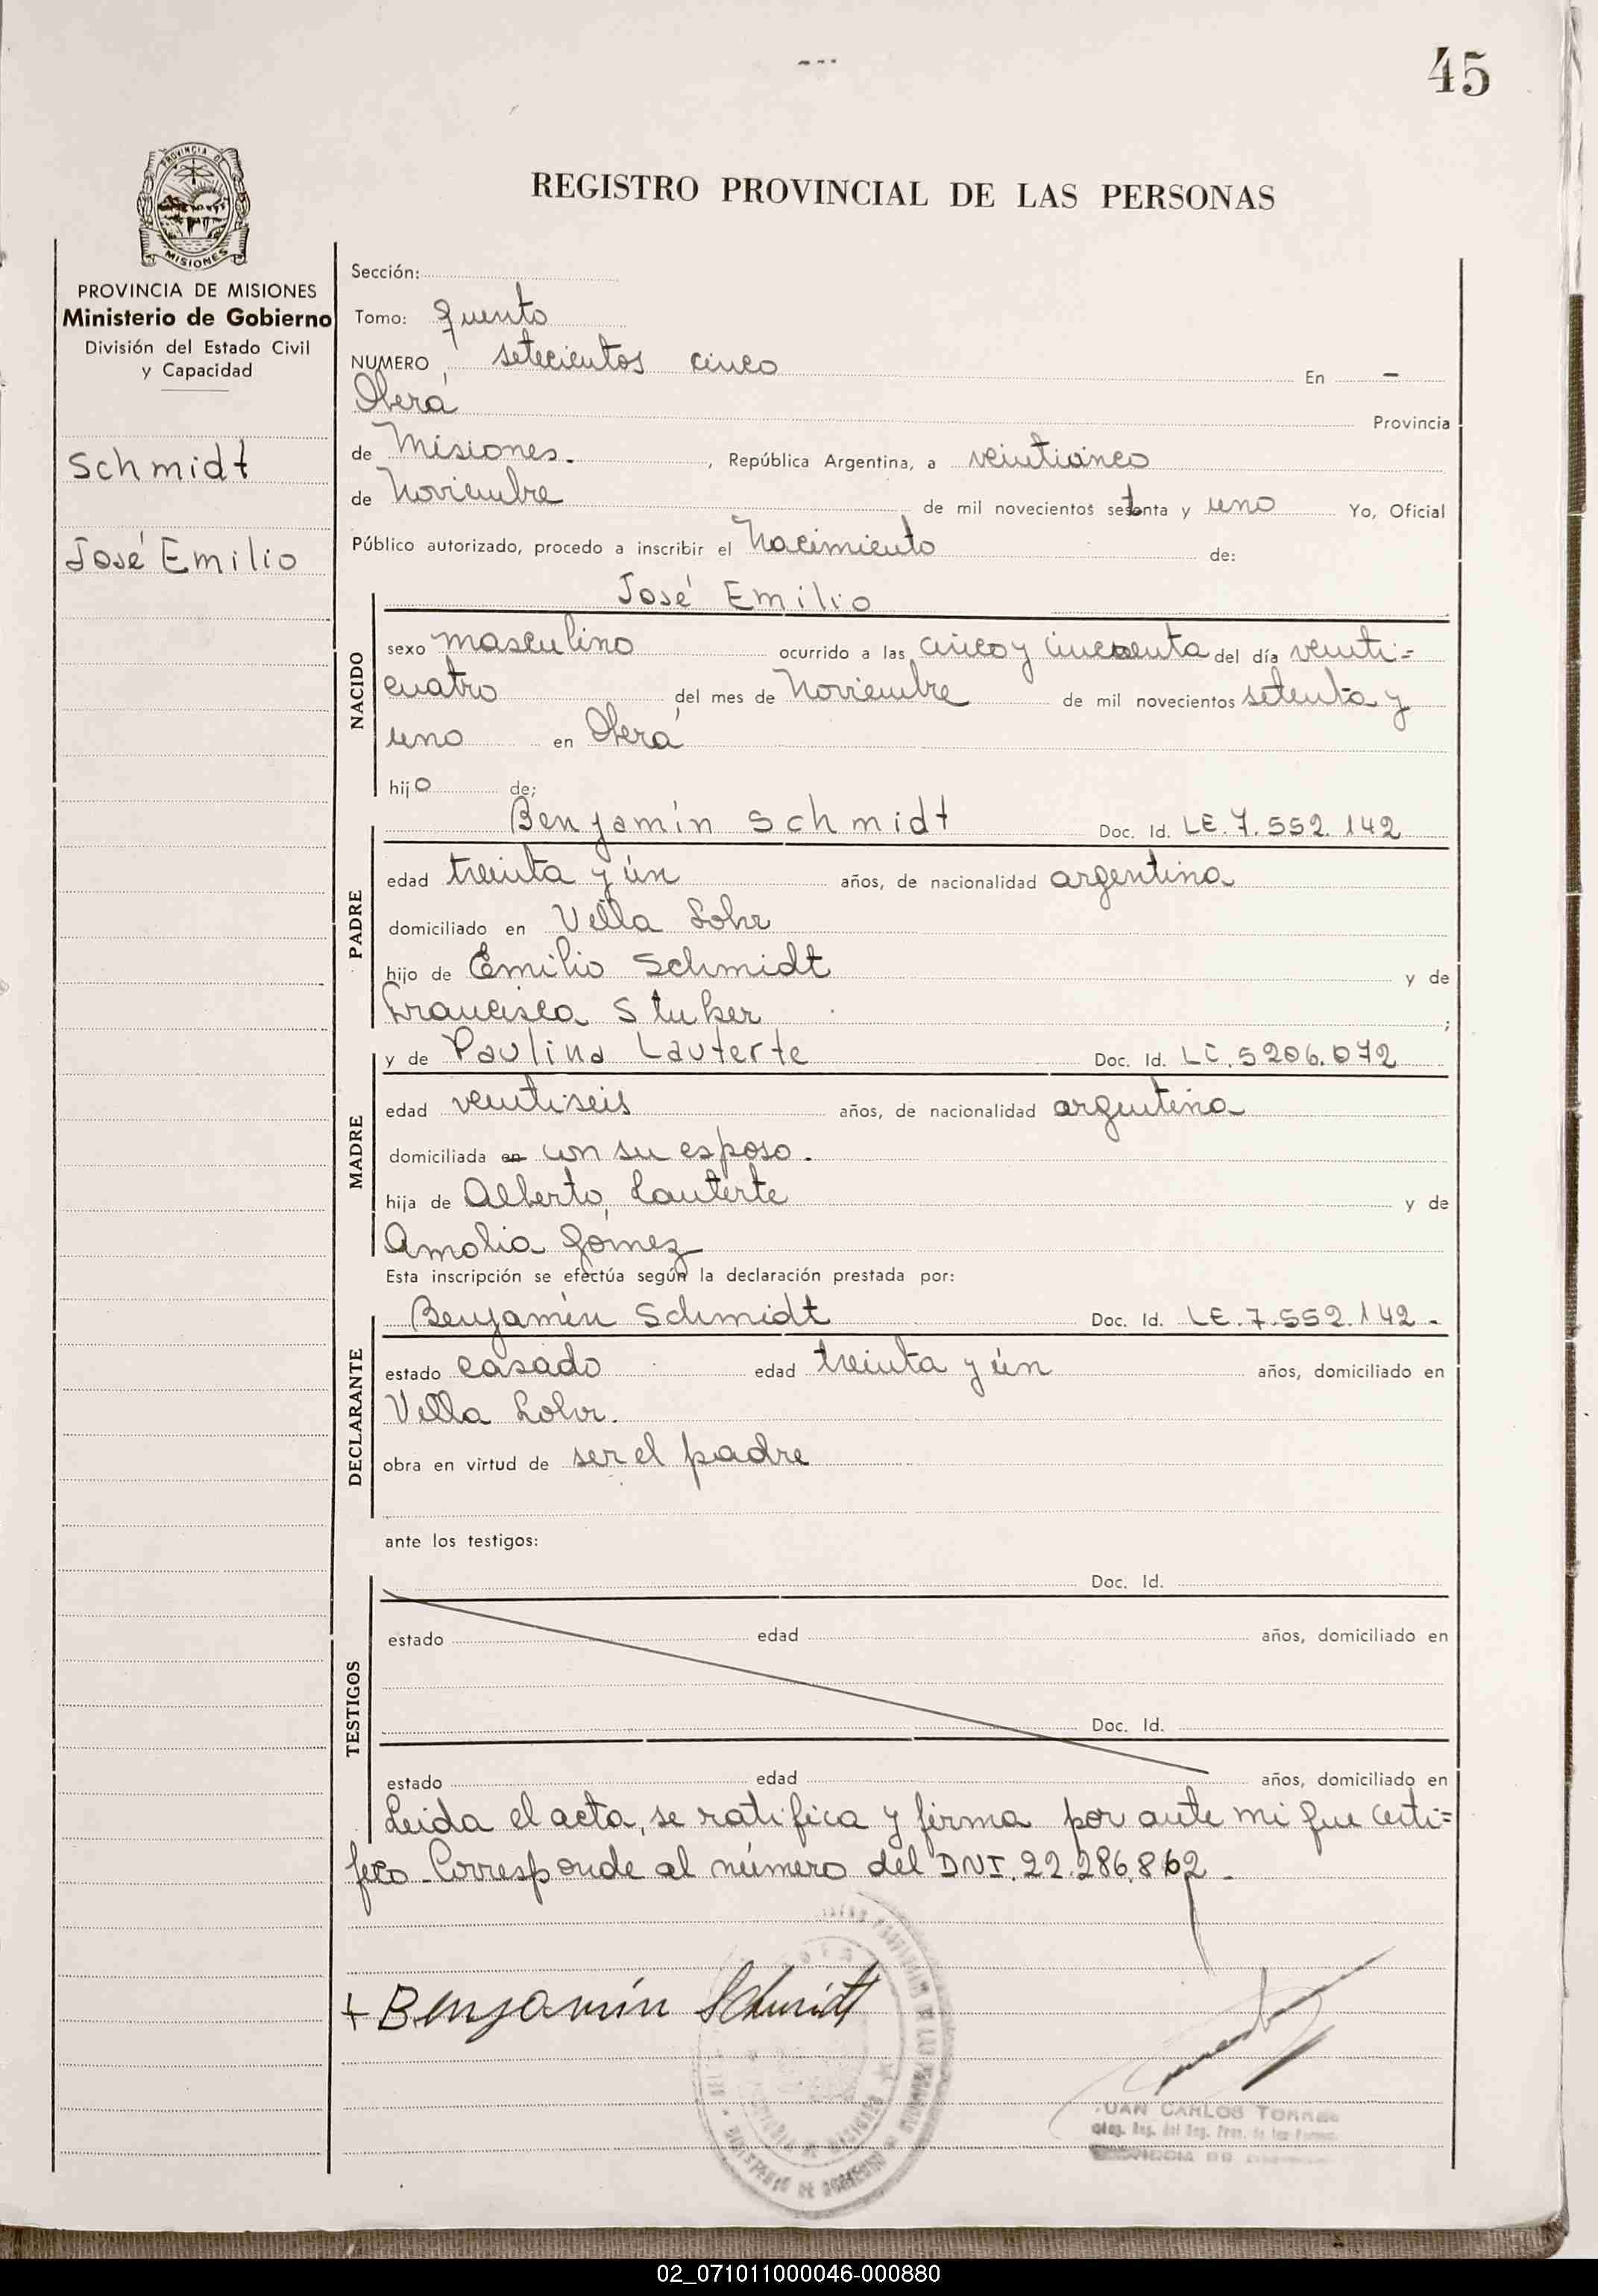 45
PROVINCIA DE
MISIONES
REGISTRO PROVINCIAL DE LAS PERSONAS
PROVINCIA DE MISIONES
Ministerio de Gobierno
División del Estado Civil
y Capacidad
Schmidt
José Emilio
Sección:
Tomo: quinto
NUMERO setecientos cinco En -
Oberá Provincia
de Misiones. , República Argentina, a veinticinco
de Noviembre de mil novecientos setenta y uno Yo, Oficial
Público autorizado, procedo a inscribir el Nacimiento de:
José Emilio
NACIDO
sexo masculino ocurrido a las cinco y cincuenta del día veinti=
cuatro del mes de Noviembre de mil novecientos setenta y
uno en Oberá
hijo de;
PADRE
Benjamín Schmidt Doc. Id. LE. 7.552.142
edad treinta y ún años, de nacionalidad argentina
domiciliado en Villa Lohr
hijo de Emilio Schmidt y de
Francisca Stuker ;
MADRE
y de Paulina Lauterte Doc. Id. LC. 5206.072
edad veintiseis años, de nacionalidad argentina
domiciliada en con su esposo.
hija de Alberto Lauterte y de
Amalia Gómez
Esta inscripción se efectúa según la declaración prestada por:
DECLARANTE
Benjamín Schmidt Doc. Id. LE. 7.552.142-
estado casado edad treinta y ún años, domiciliado en
Villa Lohr.
obra en virtud de ser el padre
ante los testigos:
TESTIGOS
Doc. Id.
estado edad años, domiciliado en
Doc. Id.
estado edad años, domiciliado en
Leida el acta, se ratifica y firma por ante mi que certi=
fico. Corresponde al número del DNI. 22.286.862-
+ Benjamín Schmidt
JUAN CARLOS TORRES
02_071011000046-000880